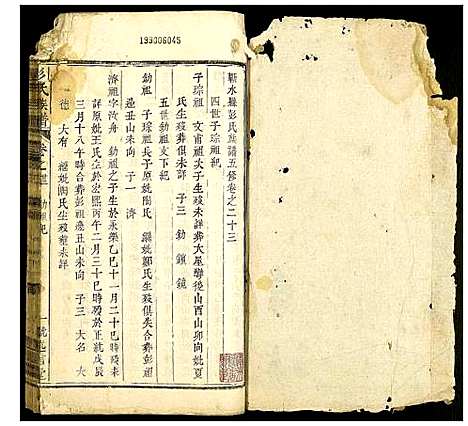 199006045
蘄水縣彭氏族譜五修卷之二十三
四世子琮祖紀
子琮祖 文甫祖次子生歿未詳葬大屋塆後山酉山卯向妣夏
氏生歿葬俱未詳 子三 勄 鎖 鏡
五世勄祖支下紀
勄祖 子琮祖長子原妣陶氏 繼妣鄭氏生歿俱失合葬彭祖
塆丑山未向 子一 濟
濟祖字汝舟 勄祖之子生於永樂乙巳十一月二十巳時歿未
詳原妣王氏生於宏熙丙午二月三十巳時歿於正統戊辰
三月十八午時合葬彭祖塆丑山未向 子三 大名 大
德 大有 繼妣陶氏生歿葬未詳
彭氏族譜 卷之二十三 勄祖紀 一 述古堂